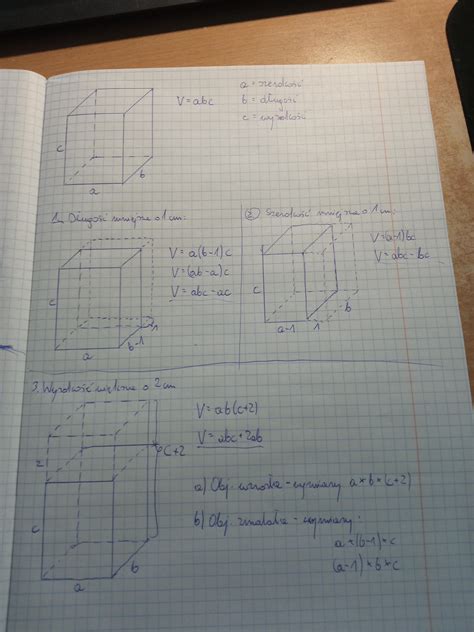 V = abc
a = szerokość
b = długość
c = wysokość
c
a
b
1. Długość mniejsza o 1 cm:
V = a(b-1)c
V = (ab-a)c
V = abc - ac
c
a
b-1
1
2) Szerokość mniejsza o 1 cm:
V = (a-1)bc
V = abc - bc
c
a-1
1
b
3. Wysokość większa o 2 cm
V = ab(c+2)
V = abc + 2ab
2
c+2
c
a
b
a) Obj. wzrosła - wymiary a * b * (c+2)
b) Obj. zmalała - wymiary:
a * (b-1) * c
(a-1) * b * c